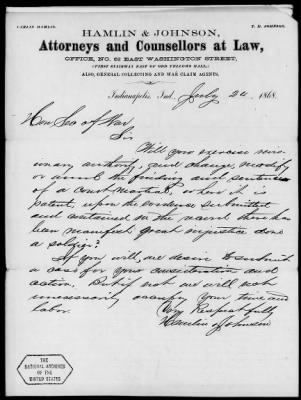 CARLIN HAMLIN.
T. H. JOHNSON.
HAMLIN & JOHNSON,
Attorneys and Counsellors at Law,
OFFICE, NO. 62 EAST WASHINGTON STREET,
(FIRST STAIRWAY EAST OF ODD FELLOWS HALL.)
ALSO, GENERAL COLLECTING AND WAR CLAIM AGENTS.
Indianapolis, Ind. July 24. 1868.
Hon. Sec of War
Sir
Will you exercise
authority, and change, modify
or annul the finding and sentence
of a Court Martial, where it is
patent, upon the evidence submitted
and contained in the record there has
been manifest great injustice done
a soldier?
If you will, we desire to submit
a case for your consideration and
action. But if not we will not
unnecessarily occupy your time and
labor.
Very Respectfully
Hamlin & Johnson
THE
NATIONAL ARCHIVES
OF THE
UNITED STATES